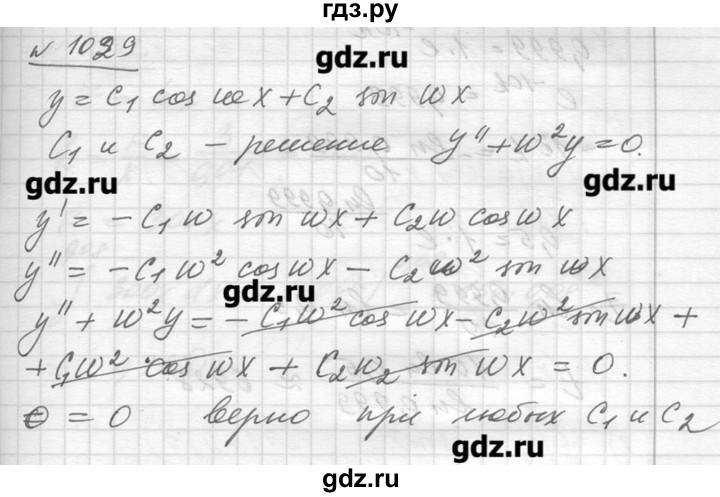 гдз.ру
№ 1029
gdz.ru
y = C₁ cos ωx + C₂ sin ωx
C₁ и C₂ – решение y'' + ω²y = 0.
gdz.ru
gdz.ru
y' = – C₁ ω sin ωx + C₂ω cos ωx
y'' = – C₁ ω² cos ωx – C₂ ω² sin ωx
gdz.ru
y'' + ω²y = – C₁ω² cos ωx – C₂ω² sin ωx +
+ C₁ω² cos ωx + C₂ω₂ sin ωx = 0.
0 = 0 верно при любых C₁ и C₂
gdz.ru
gdz.ru